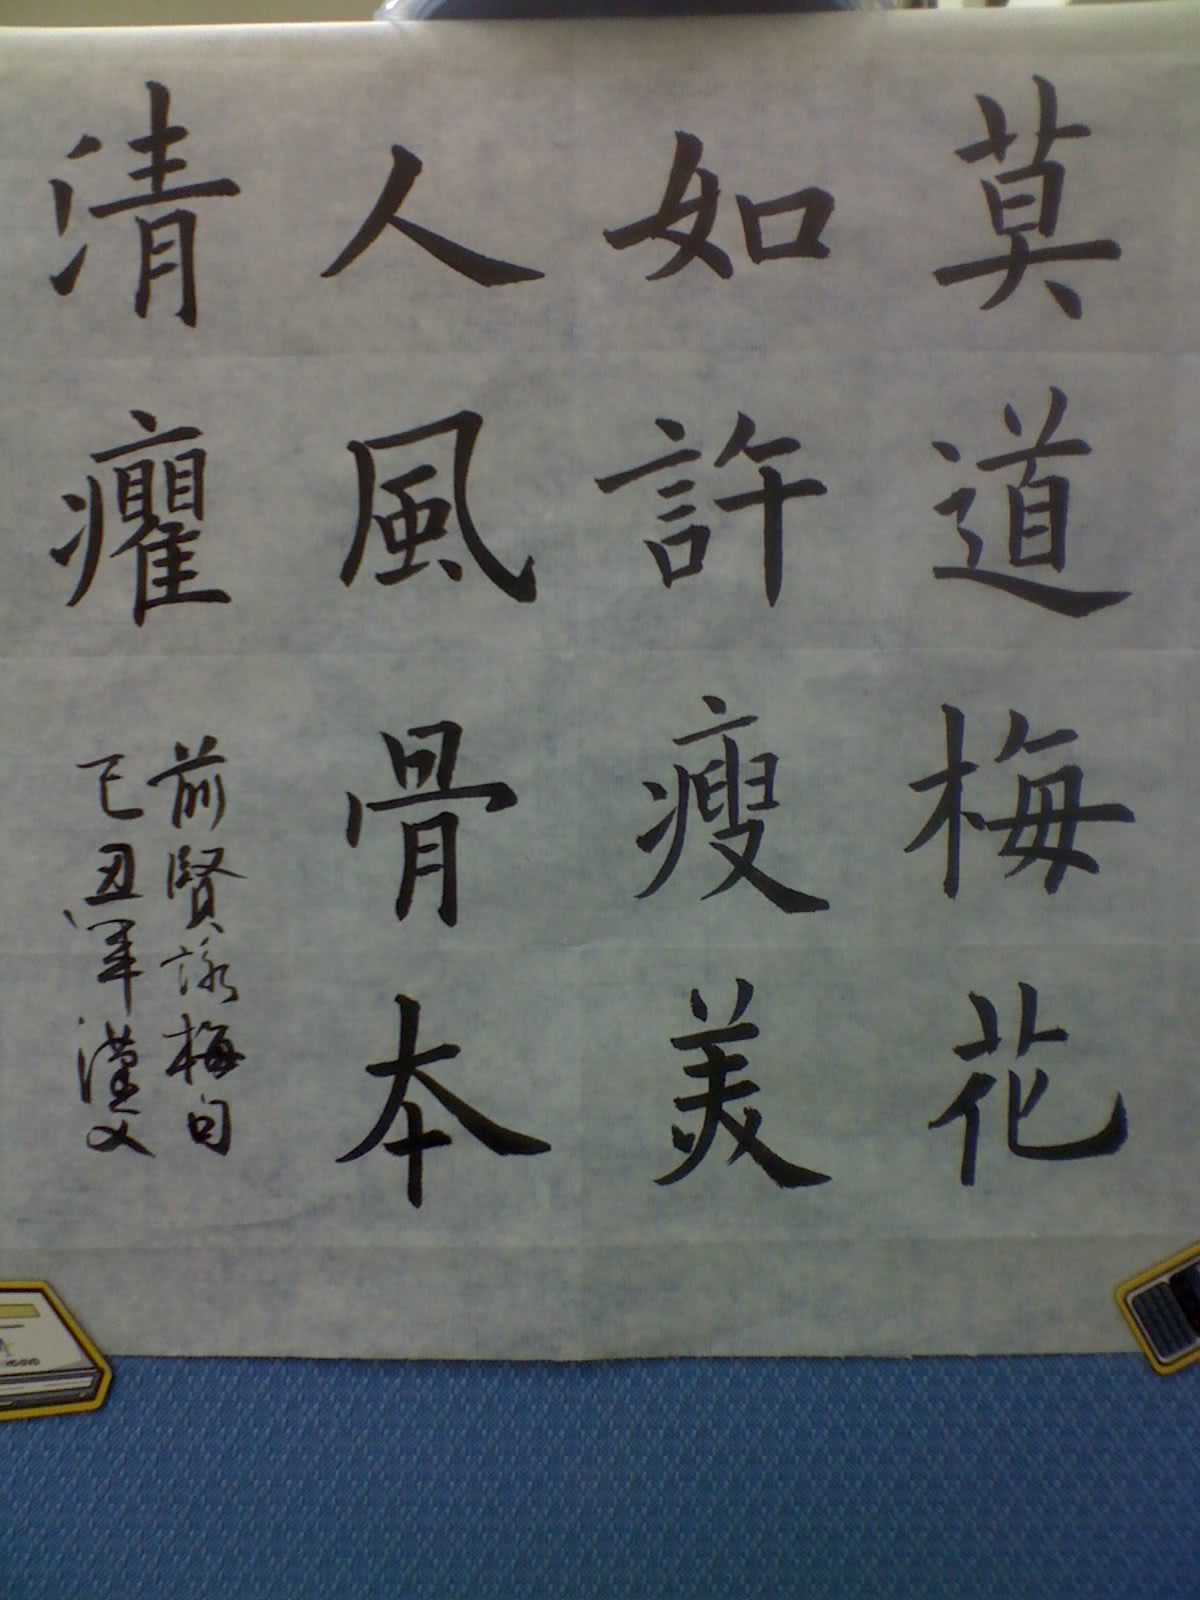 莫道梅花
如許瘦美
人風骨本
清癯
前賢詠梅句
己丑年漢文